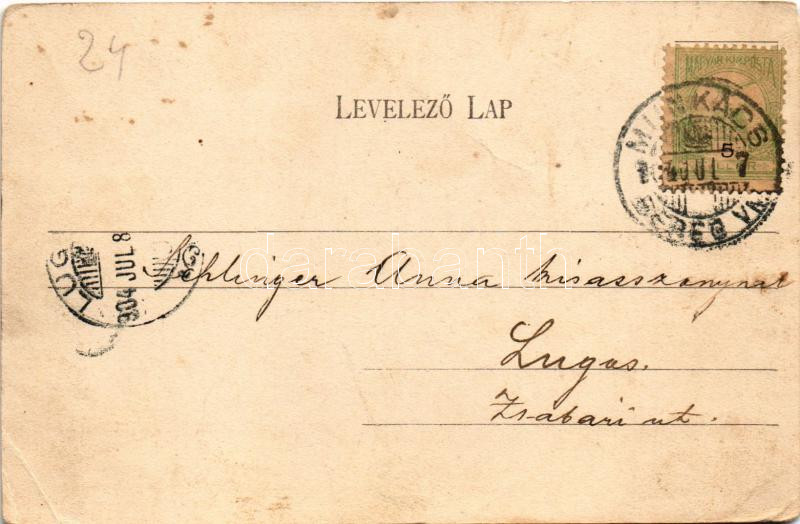 24
LEVELEZŐ LAP
MAGYAR KIR. POSTA
5
MUNKÁCS
904 JUL 7
BEREG VM
LUGOS
904 JUL 8
darabanth
Sehlinger Anna kisasszonynak
Lugos.
Zsabári út.